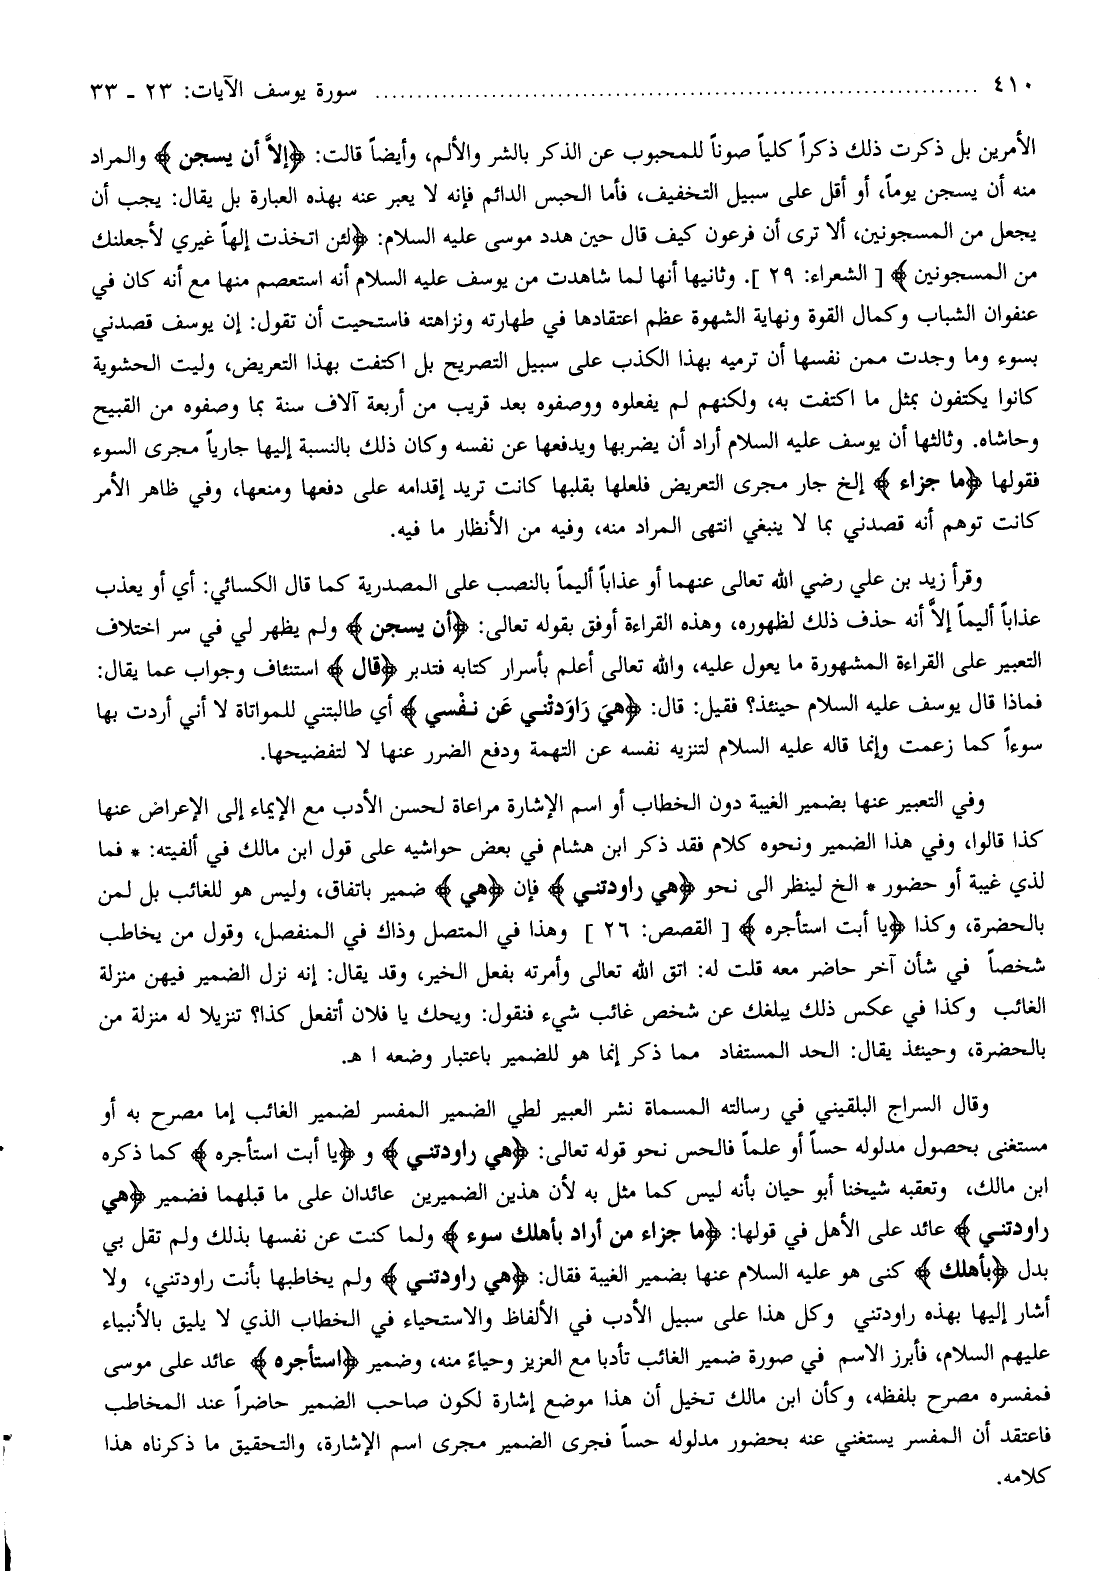 ٤١٠ ........ سورة يوسف الآيات: ٢٣ ـ ٣٣
الأمرين بل ذكرت ذلك ذكراً كلياً صوناً للمحبوب عن الذكر بالشر والألم، وأيضاً قالت: ﴿إلاَّ أن يسجن﴾ والمراد
منه أن يسجن يوماً، أو أقل على سبيل التخفيف، فأما الحبس الدائم فإنه لا يعبر عنه بهذه العبارة بل يقال: يجب أن
يجعل من المسجونين، ألا ترى أن فرعون كيف قال حين هدد موسى عليه السلام: ﴿لئن اتخذت إلهاً غيري لأجعلنك
من المسجونين﴾ [ الشعراء: ٢٩ ]. وثانيها أنها لما شاهدت من يوسف عليه السلام أنه استعصم منها مع أنه كان في
عنفوان الشباب وكمال القوة ونهاية الشهوة عظم اعتقادها في طهارته ونزاهته فاستحيت أن تقول: إن يوسف قصدني
بسوء وما وجدت ممن نفسها أن ترميه بهذا الكذب على سبيل التصريح بل اكتفت بهذا التعريض، وليت الحشوية
كانوا يكتفون بمثل ما اكتفت به، ولكنهم لم يفعلوه ووصفوه بعد قريب من أربعة آلاف سنة بما وصفوه من القبيح
وحاشاه. وثالثها أن يوسف عليه السلام أراد أن يضربها ويدفعها عن نفسه وكان ذلك بالنسبة إليها جارياً مجرى السوء
فقولها ﴿ما جزاء﴾ إلخ جار مجرى التعريض فلعلها بقلبها كانت تريد إقدامه على دفعها ومنعها، وفي ظاهر الأمر
كانت توهم أنه قصدني بما لا ينبغي انتهى المراد منه، وفيه من الأنظار ما فيه.
وقرأ زيد بن علي رضي الله تعالى عنهما أو عذاباً أليماً بالنصب على المصدرية كما قال الكسائي: أي أو يعذب
عذاباً أليماً إلاَّ أنه حذف ذلك لظهوره، وهذه القراءة أوفق بقوله تعالى: ﴿أن يسجن﴾ ولم يظهر لي في سر اختلاف
التعبير على القراءة المشهورة ما يعول عليه، والله تعالى أعلم بأسرار كتابه فتدبر ﴿قال﴾ استئناف وجواب عما يقال:
فماذا قال يوسف عليه السلام حينئذ؟ فقيل: قال: ﴿هيَ رَاوَدتْني عَن نفْسي﴾ أي طالبتني للمواتاة لا أني أردت بها
سوءاً كما زعمت وإنما قاله عليه السلام لتنزيه نفسه عن التهمة ودفع الضرر عنها لا لتفضيحها.
وفي التعبير عنها بضمير الغيبة دون الخطاب أو اسم الإشارة مراعاة لحسن الأدب مع الإيماء إلى الإعراض عنها
كذا قالوا، وفي هذا الضمير ونحوه كلام فقد ذكر ابن هشام في بعض حواشيه على قول ابن مالك في ألفيته: * فما
لذي غيبة أو حضور * الخ لينظر الى نحو ﴿هي راودتني﴾ فإن ﴿هي﴾ ضمير باتفاق، وليس هو للغائب بل لمن
بالحضرة، وكذا ﴿يا أبت استأجره﴾ [ القصص: ٢٦ ] وهذا في المتصل وذاك في المنفصل، وقول من يخاطب
شخصاً في شأن آخر حاضر معه قلت له: اتق الله تعالى وأمرته بفعل الخير، وقد يقال: إنه نزل الضمير فيهن منزلة
الغائب وكذا في عكس ذلك يبلغك عن شخص غائب شيء فنقول: ويحك يا فلان أتفعل كذا؟ تنزيلا له منزلة من
بالحضرة، وحينئذ يقال: الحد المستفاد مما ذكر إنما هو للضمير باعتبار وضعه ا هـ.
وقال السراج البلقيني في رسالته المسماة نشر العبير لطي الضمير المفسر لضمير الغائب إما مصرح به أو
مستغنى بحصول مدلوله حساً أو علماً فالحس نحو قوله تعالى: ﴿هي راودتني﴾ و ﴿يا أبت استأجره﴾ كما ذكره
ابن مالك، وتعقبه شيخنا أبو حيان بأنه ليس كما مثل به لأن هذين الضميرين عائدان على ما قبلهما فضمير ﴿هي
راودتني﴾ عائد على الأهل في قولها: ﴿ما جزاء من أراد بأهلك سوء﴾ ولما كنت عن نفسها بذلك ولم تقل بي
بدل ﴿بأهلك﴾ كنى هو عليه السلام عنها بضمير الغيبة فقال: ﴿هي راودتني﴾ ولم يخاطبها بأنت راودتني، ولا
أشار إليها بهذه راودتني وكل هذا على سبيل الأدب في الألفاظ والاستحياء في الخطاب الذي لا يليق بالأنبياء
عليهم السلام، فأبرز الاسم في صورة ضمير الغائب تأدبا مع العزيز وحياءً منه، وضمير ﴿استأجره﴾ عائد على موسى
فمفسره مصرح بلفظه، وكأن ابن مالك تخيل أن هذا موضع إشارة لكون صاحب الضمير حاضراً عند المخاطب
فاعتقد أن المفسر يستغني عنه بحضور مدلوله حساً فجرى الضمير مجرى اسم الإشارة، والتحقيق ما ذكرناه هذا
كلامه.